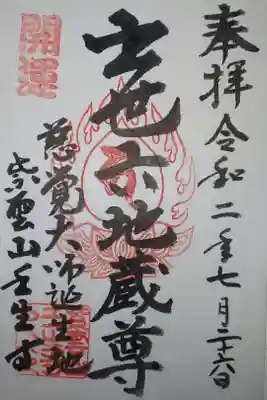 奉拝 令和二年七月二十六日
出世六地蔵尊
開運
慈覚大師誕生地
紫雲山壬生寺